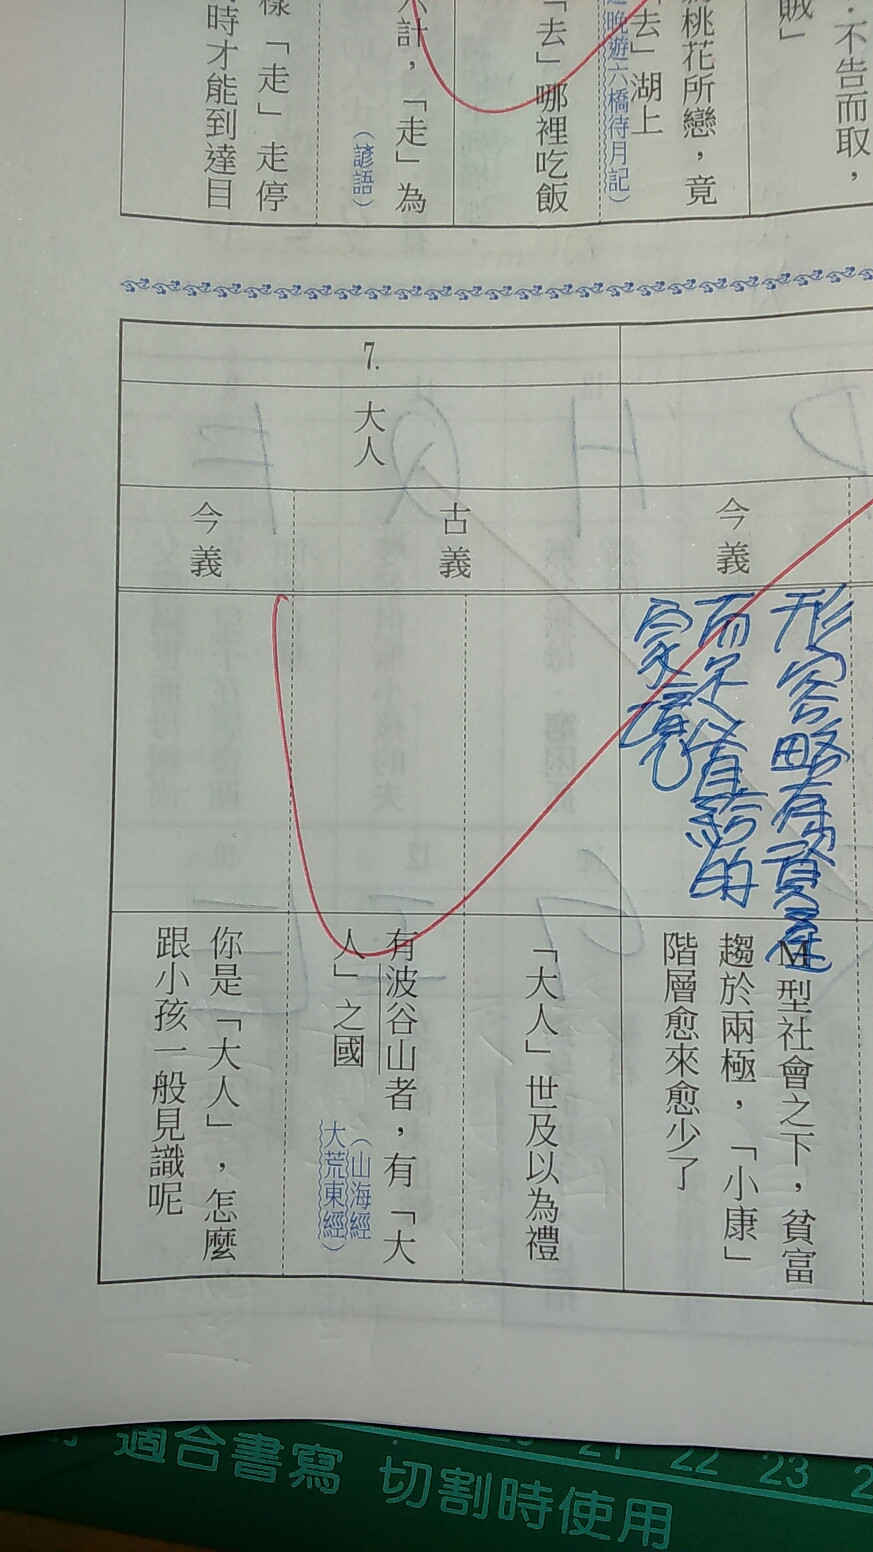 ：不告而取，
賊」
桃花所戀，竟
去」湖上
晚遊六橋待月記）
「去」哪裡吃飯
計，「走」為
（諺語）
「走」走停
時才能到達目
7.
大人
今義
形容略有資產
而足以自給的
家境
M型社會之下，貧富
趨於兩極，「小康」
階層愈來愈少了
古義
「大人」世及以為禮
有波谷山者，有「大
人」之國
（山海經
大荒東經）
今義
你是「大人」，怎麼
跟小孩一般見識呢
適合書寫 切割時使用
21 22 23